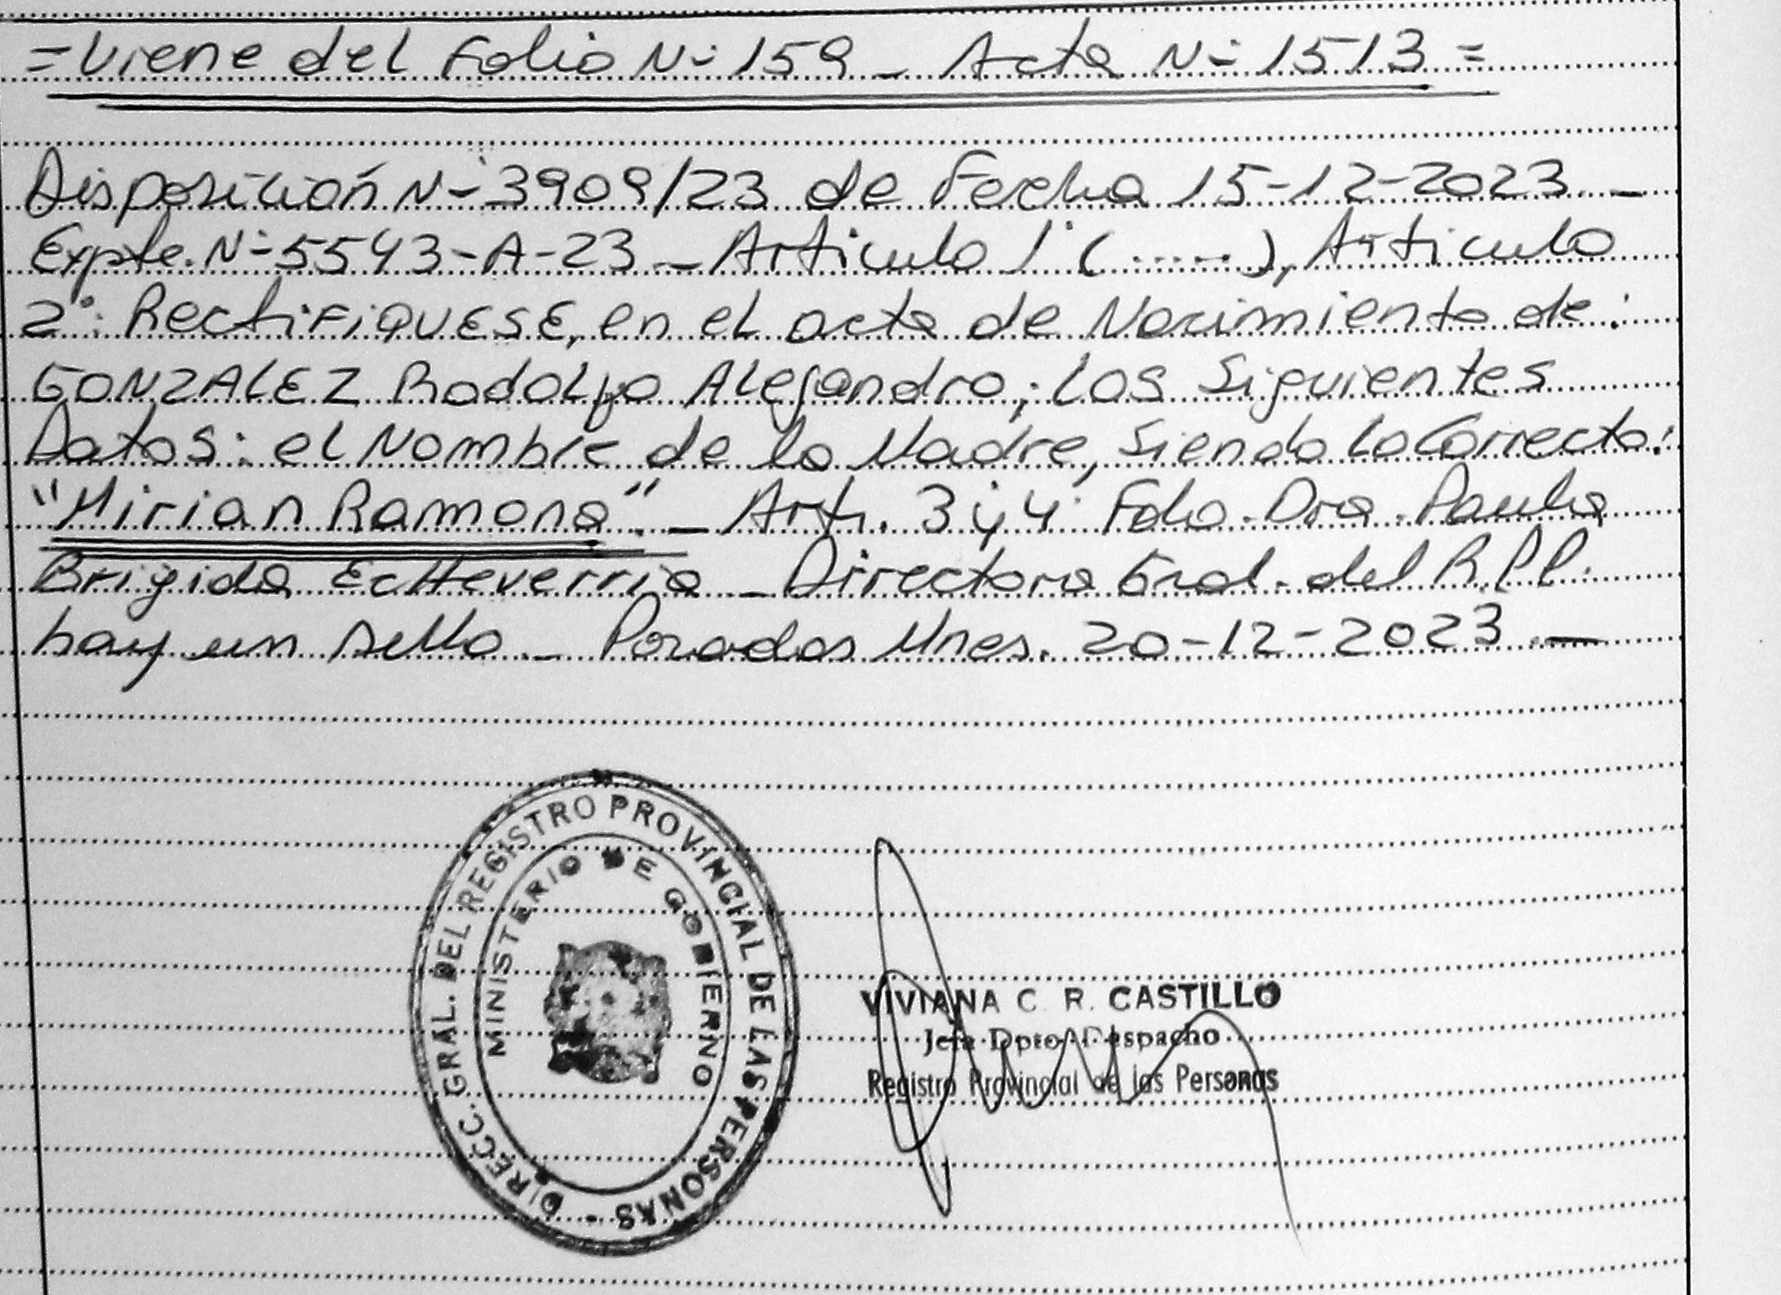 =Viene del Folio N° 159 _ Acta N° 1513 =
Disposición N° 3909/23 de Fecha 15-12-2023 _
Expte. N° 5543-A-23 _ Articulo 1° (......), Articulo
2°: Rectifiquese, en el acta de Nacimiento de:
GONZALEZ Rodolfo Alejandro; los Siguientes
Datos: el Nombre de la Madre, Siendo lo Correcto:
"Mirian Ramona". _ Art. 3 y 4° Fdo. Dra. Paula
Brigida Echeverria _ Directora Gral. del R.P.P.
hay un sello _ Posadas Mnes. 20-12-2023 . _
DIRECC. GRAL. DEL REGISTRO PROVINCIAL DE LAS PERSONAS -
MINISTERIO DE GOBIERNO
VIVIANA C. R. CASTILLO
Jefa Dpto. Despacho
Registro Provincial de las Personas